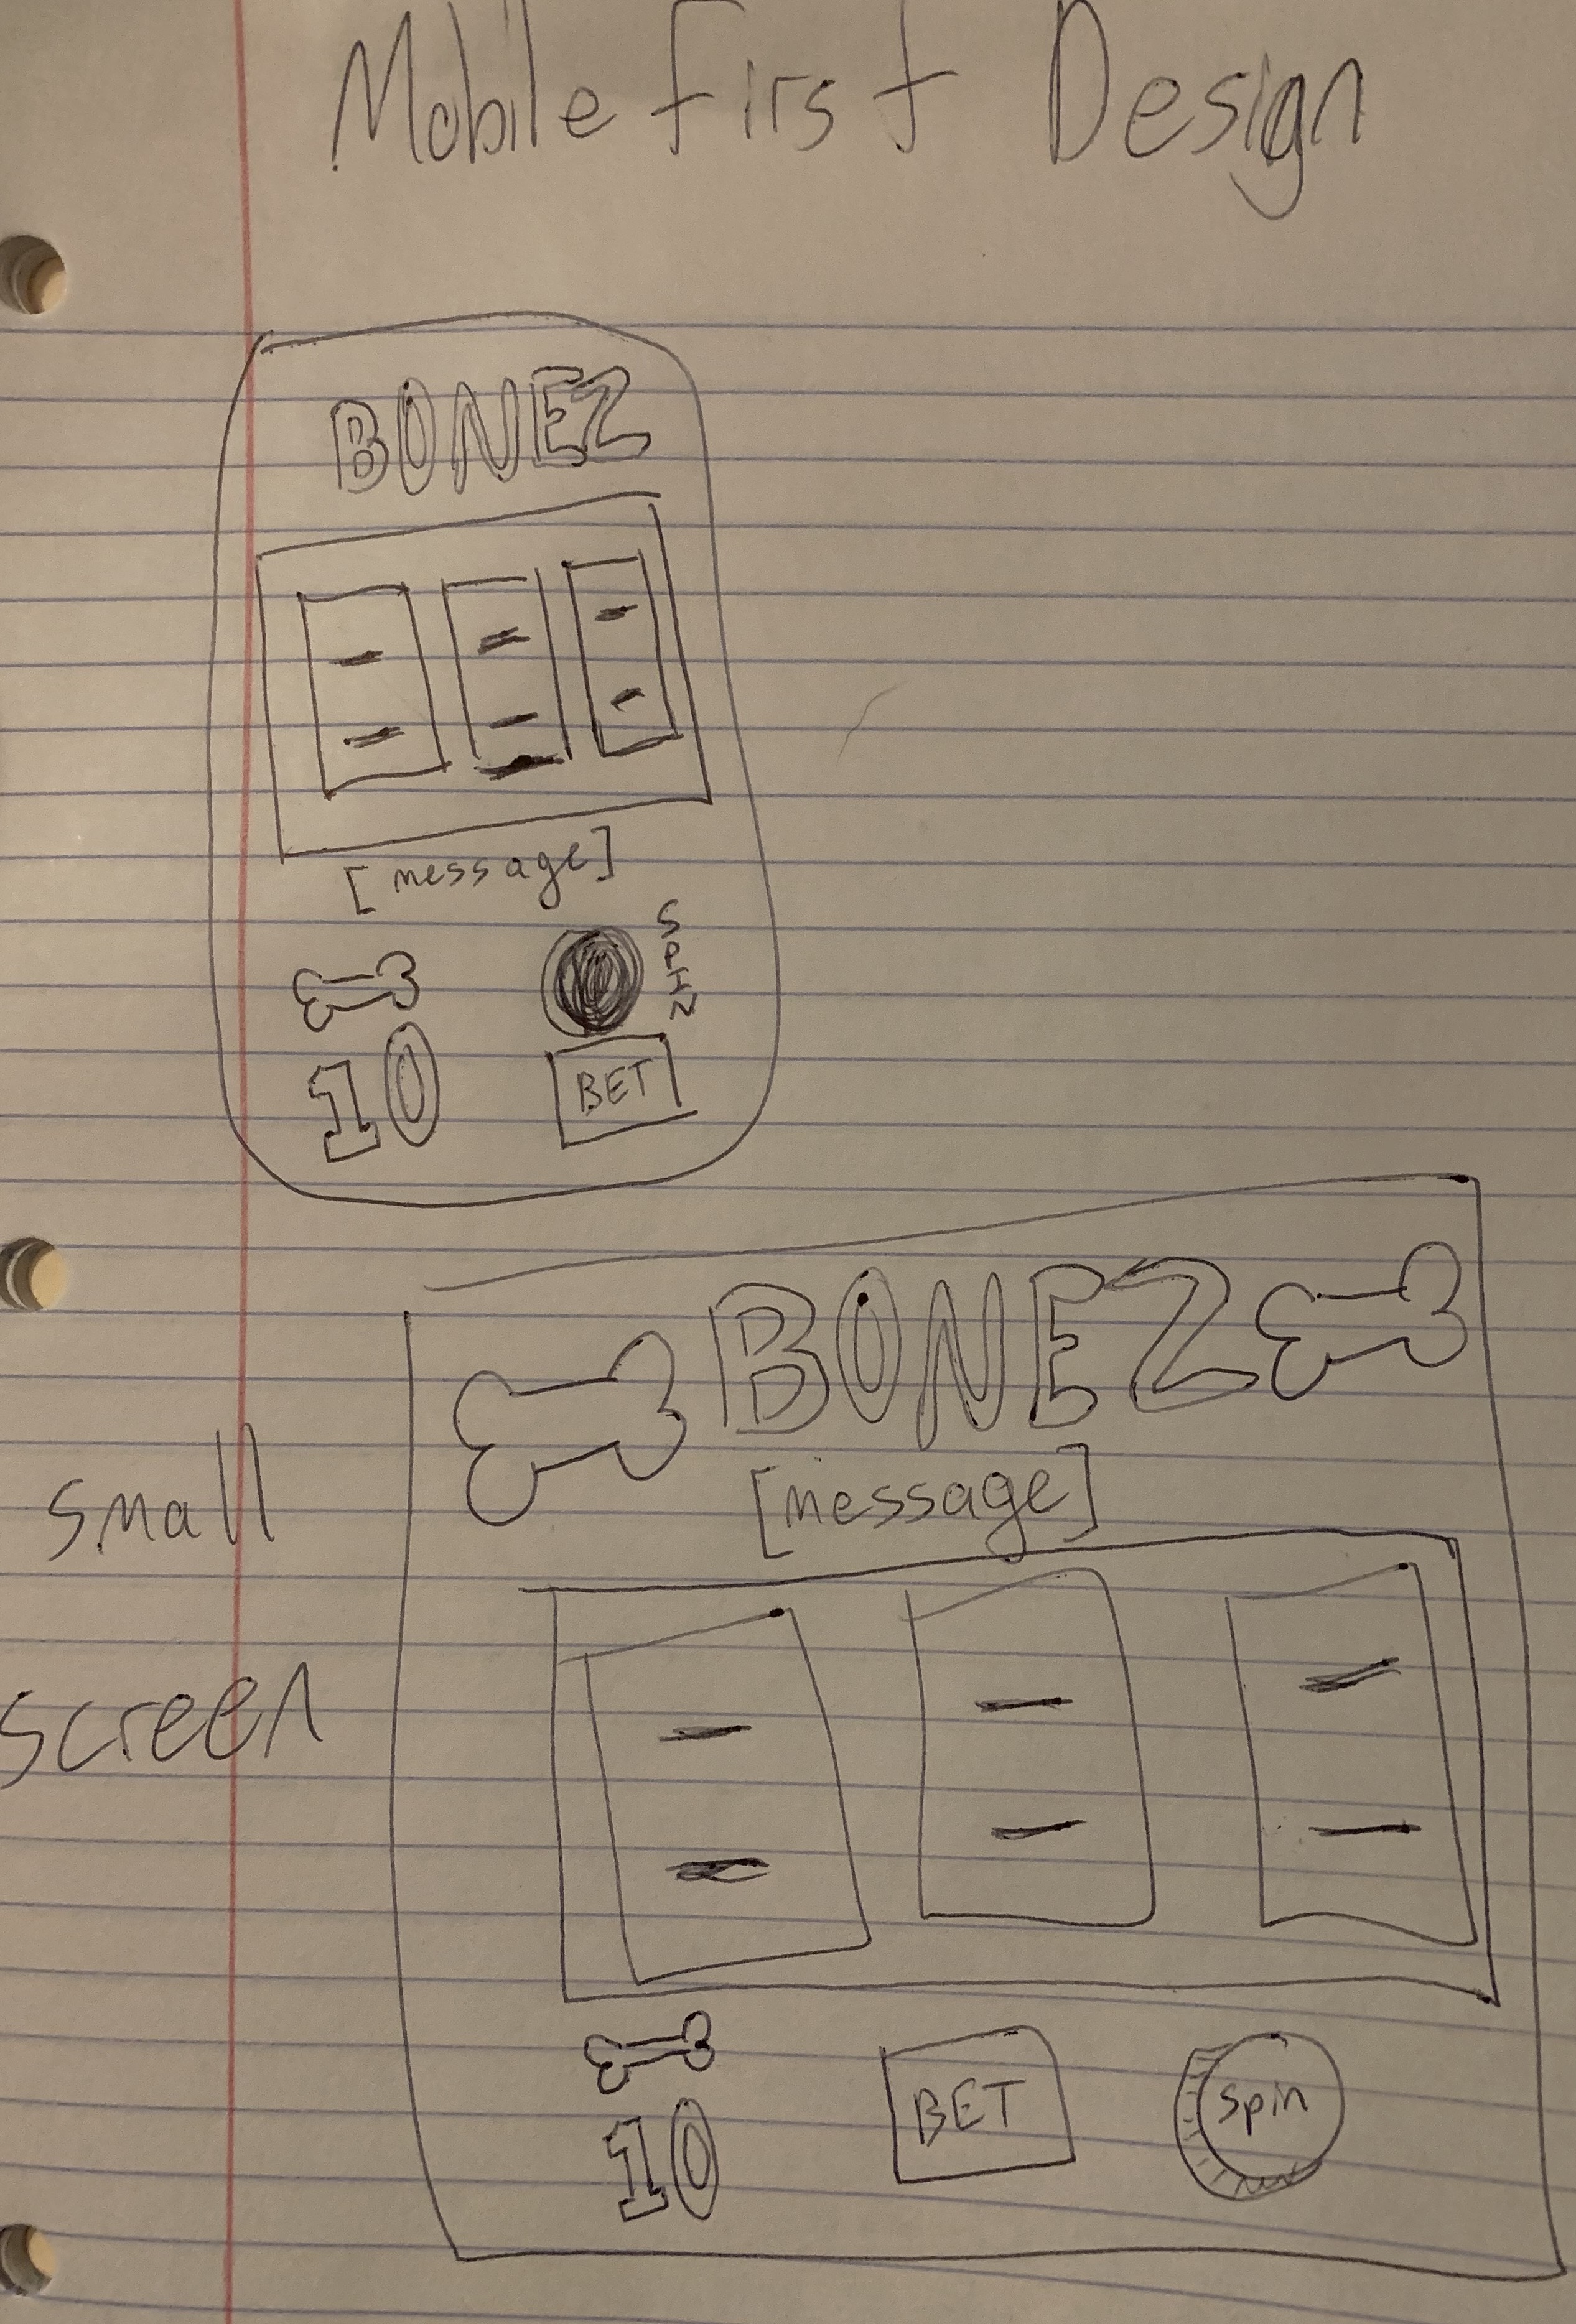 Mobile First Design
BONEZ
[message]
SPIN
10
BET
small
screen
BONEZ
[message]
10
BET
Spin